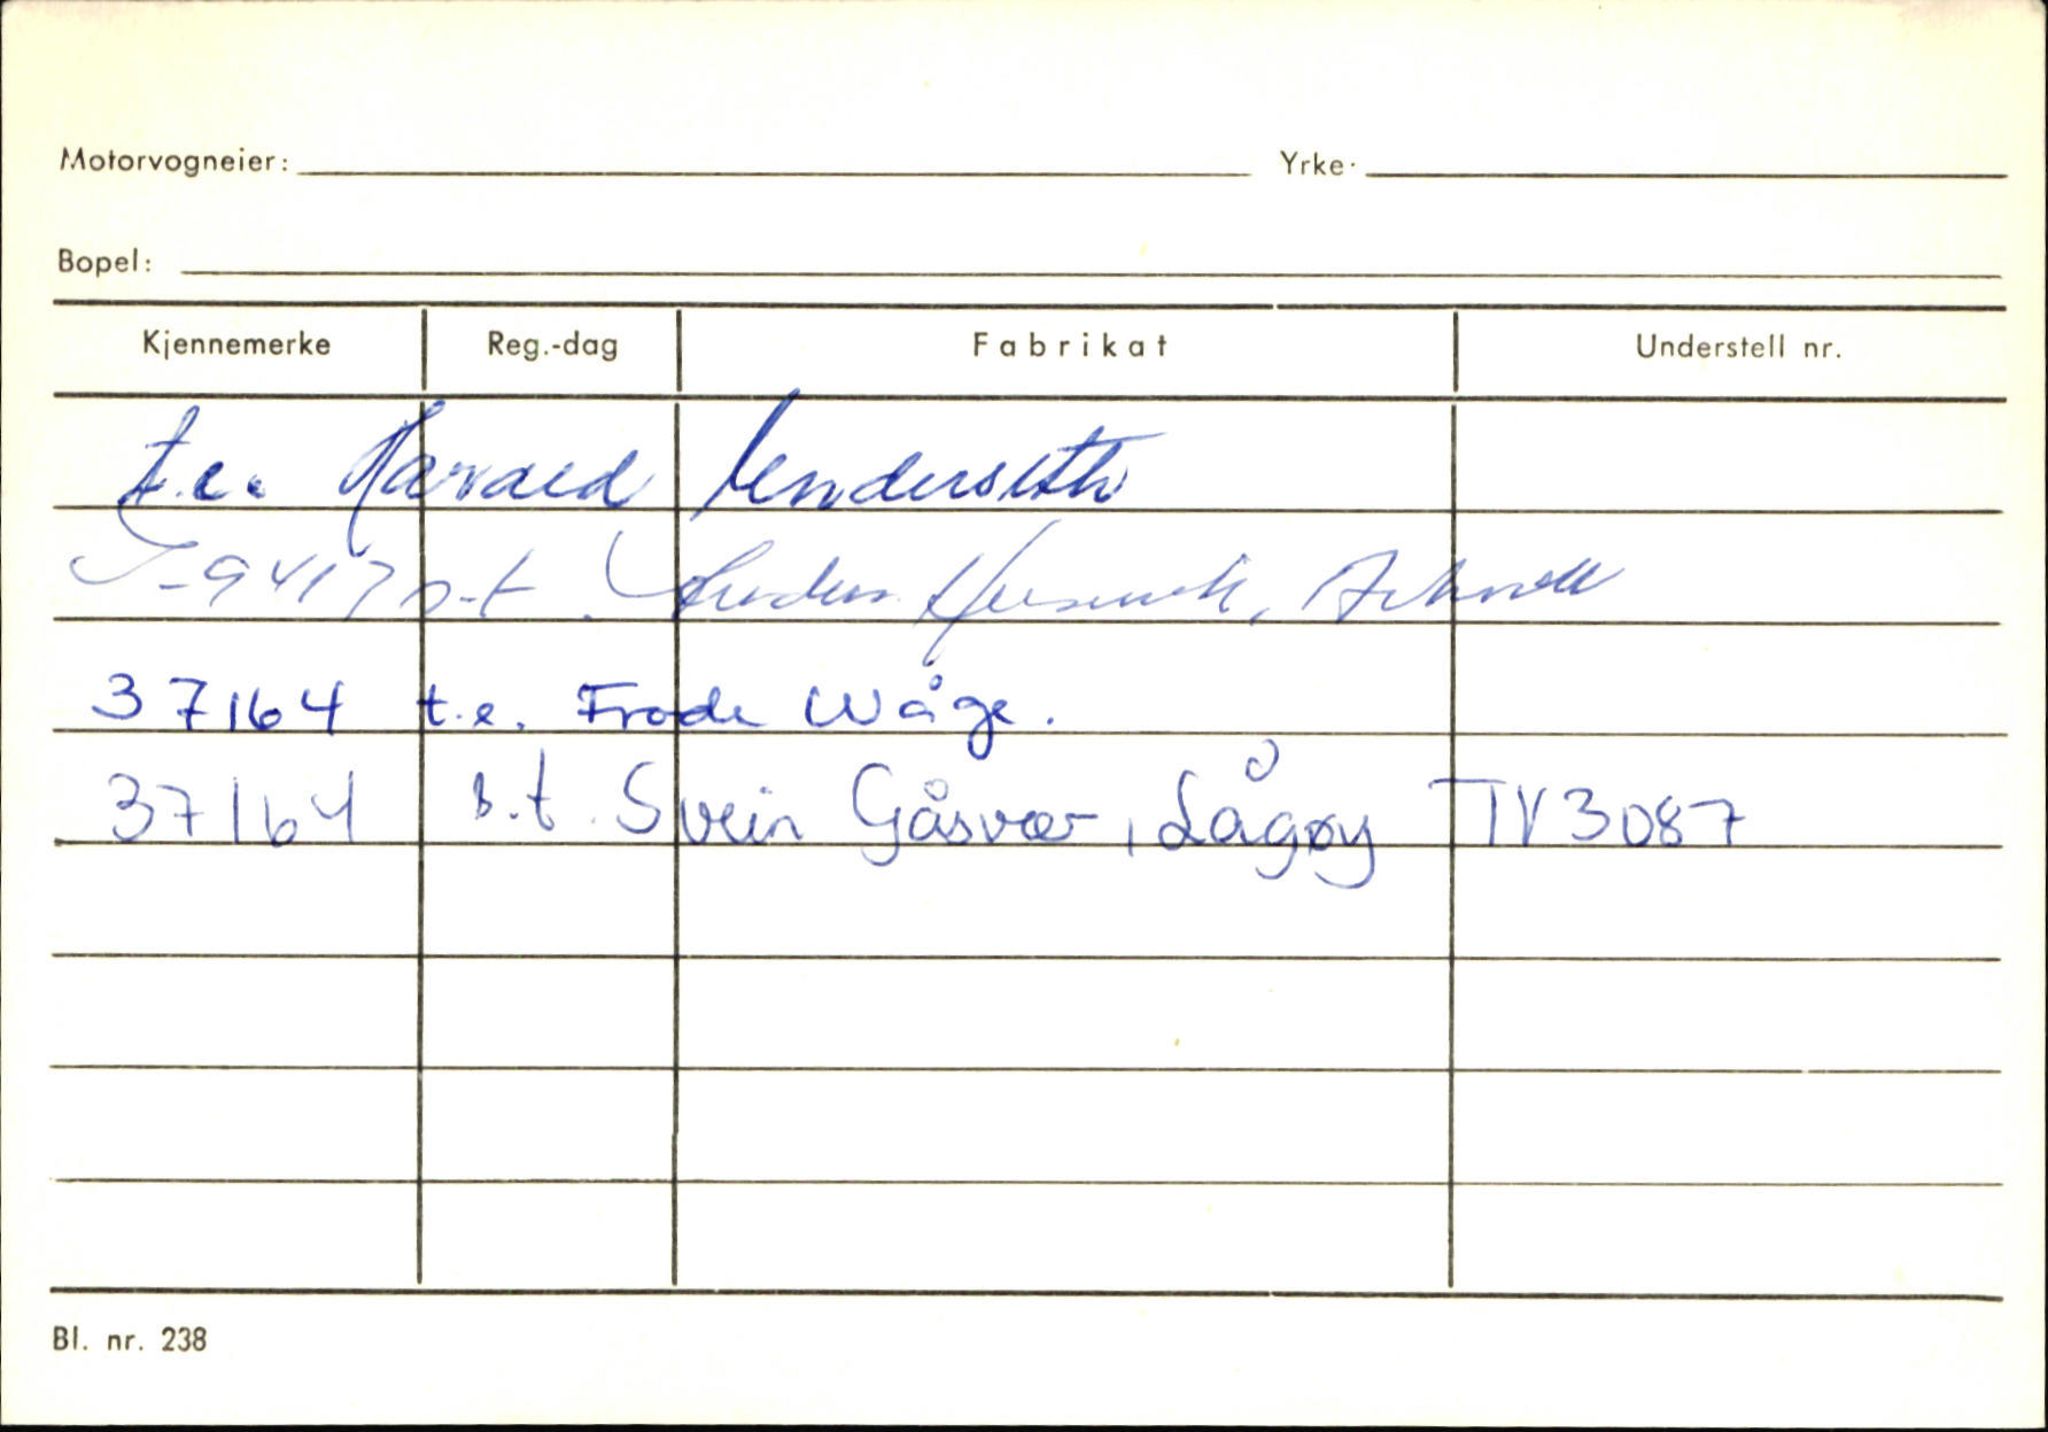 Motorvogneier:
Yrke.
Bopel:
Kjennemerke Reg.-dag Fabrikat Understell nr.
t.e. Harald
-9417
37164 t.e. Frode Wåge.
37164 b.t. Svein Gåsvær, Lågøy TV3087
Bl. nr. 238